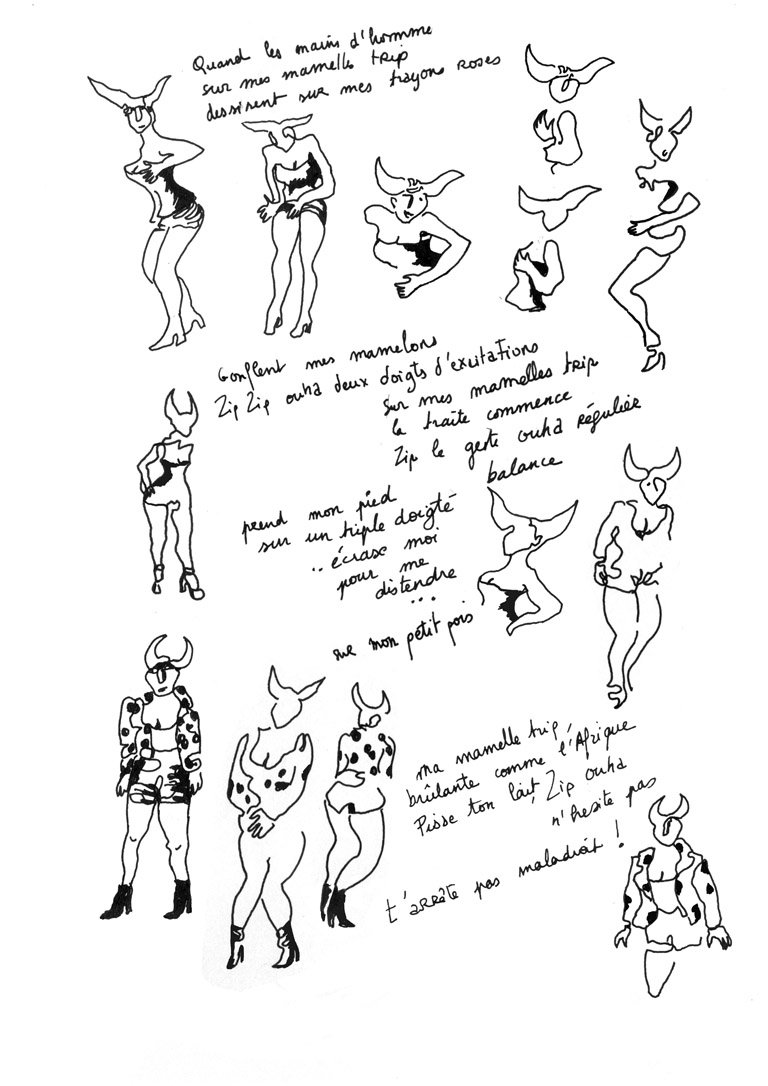 Quand les mains d'homme
sur mes mamelle trip
dessinent sur mes trayons roses
Gonflent mes mamelons
Zip Zip ouha deux doigts d'excitations
sur mes mamelles trip
la traite commence
Zip le geste ouha régulièr
balance
prend mon pied
sur un triple doigté
.. écrase moi
pour me
distendre
...
sue mon petit pois
ma mamelle trip,
brûlante comme l'Afrique
Pisse ton lait, Zip ouha
n'hesite pas
t'arrête pas maladroit !